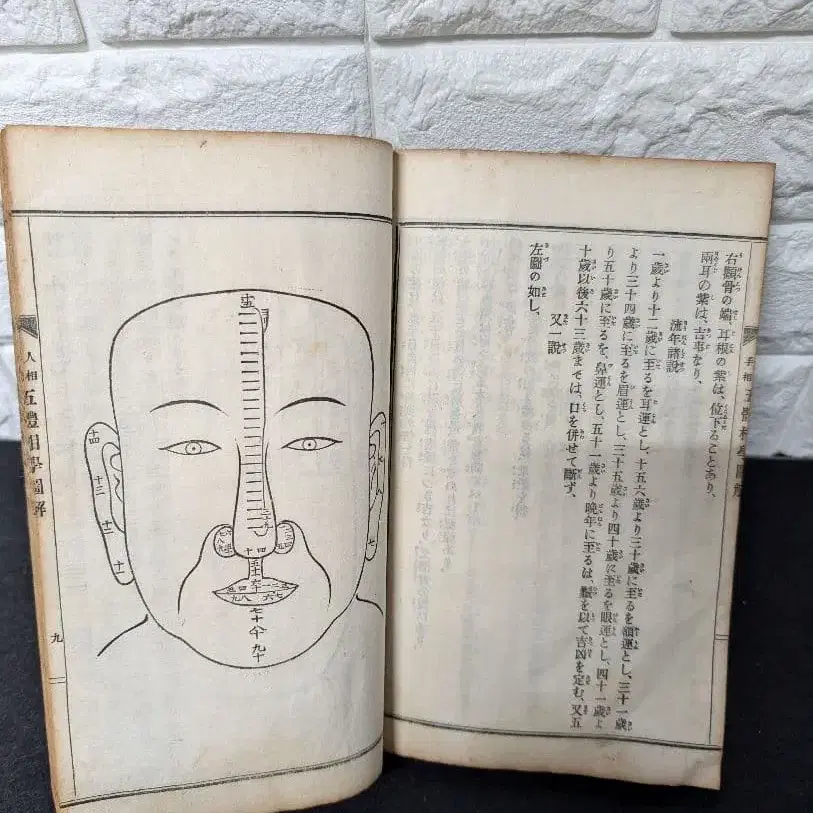 右顴骨の端、耳根の紫は、位下ることあり、
兩耳の紫は、吉事なり、
流年諸説
一歳より十二歳に至るを耳運とし、十五六歳より三十歳に至るを額運とし、三十一歳
より三十四歳に至るを眉運とし、三十五歳より四十歳に至るを眼運とし、四十一歳よ
り五十歳に至るを、鼻運とし、五十一歳より晩年に至るは、を以て吉凶を定む、又五
十歳以後六十三歳までは、口を併せて斷ず、
又一説
左圖の如し、
十四
十三
十二
十一
七
五十
六十
七十
八十
九十
人相五體相學圖解
九